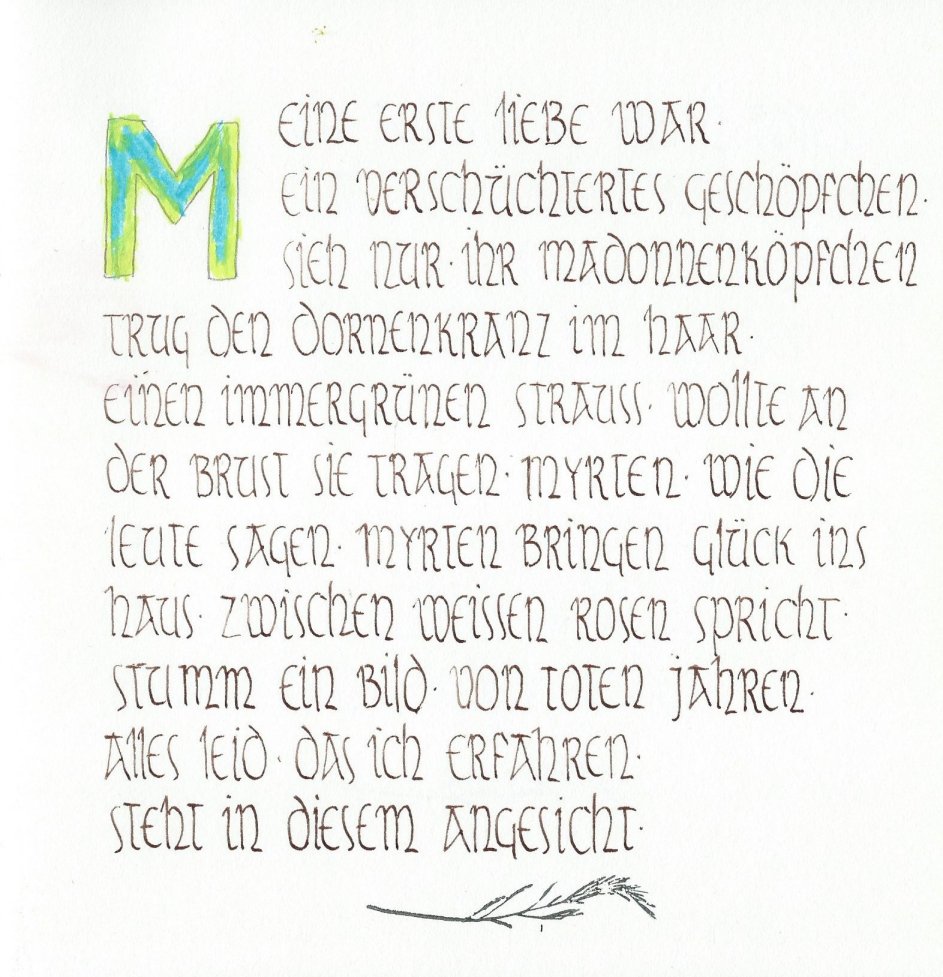 MEINE ERSTE LIEBE WAR·
EIN VERSCHÜCHTERTES GESCHÖPFCHEN·
SIEH NUR· IHR MADONNENKÖPFCHEN
TRUG DEN DORNENKRANZ IM HAAR·
EINEN IMMERGRÜNEN STRAUSS· WOLLTE AN
DER BRUST SIE TRAGEN· MYRTEN· WIE DIE
LEUTE SAGEN· MYRTEN BRINGEN GLÜCK INS
HAUS· ZWISCHEN WEISSEN ROSEN SPRICHT·
STUMM EIN BILD· VON TOTEN JAHREN·
ALLES LEID· DAS ICH ERFAHREN·
STEHT IN DIESEM ANGESICHT·